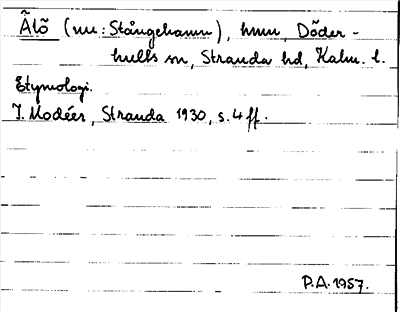 Ålö (nu: Stångehamn), hmn, Döder-
hults sn, Stranda hd, Kalm. l.
Etymologi.
I. Modéer, Stranda 1930, s. 4 ff.
P.A. 1957.